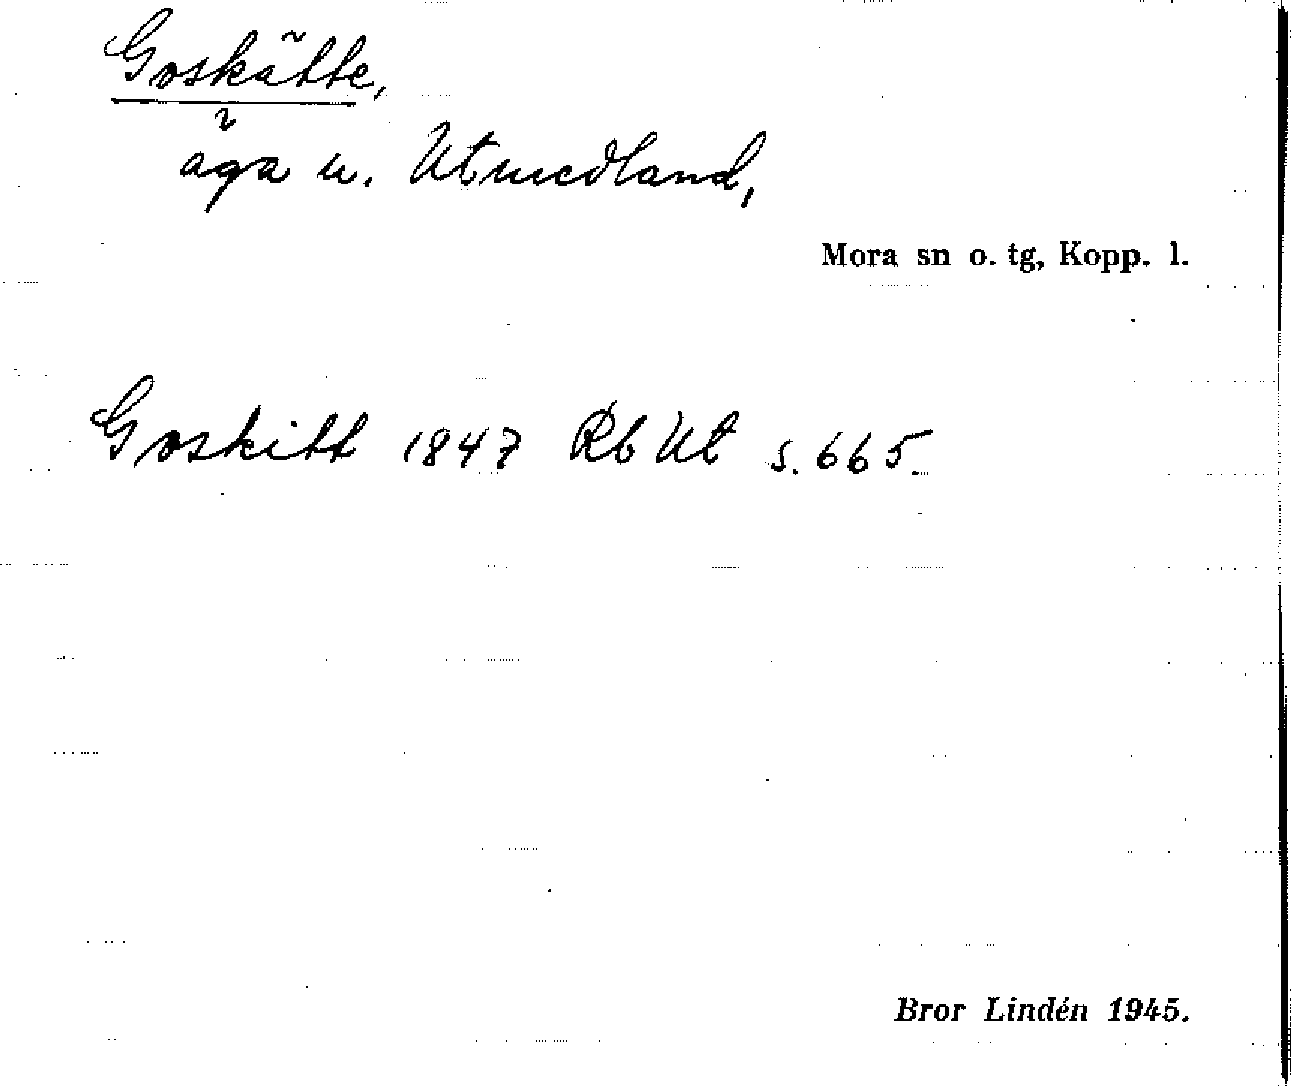 Goskätte,
äga u. Utmedland,
Mora sn o. tg, Kopp. l.
Goskitt 1847 Rb Ut s. 665.
Bror Lindén 1945.